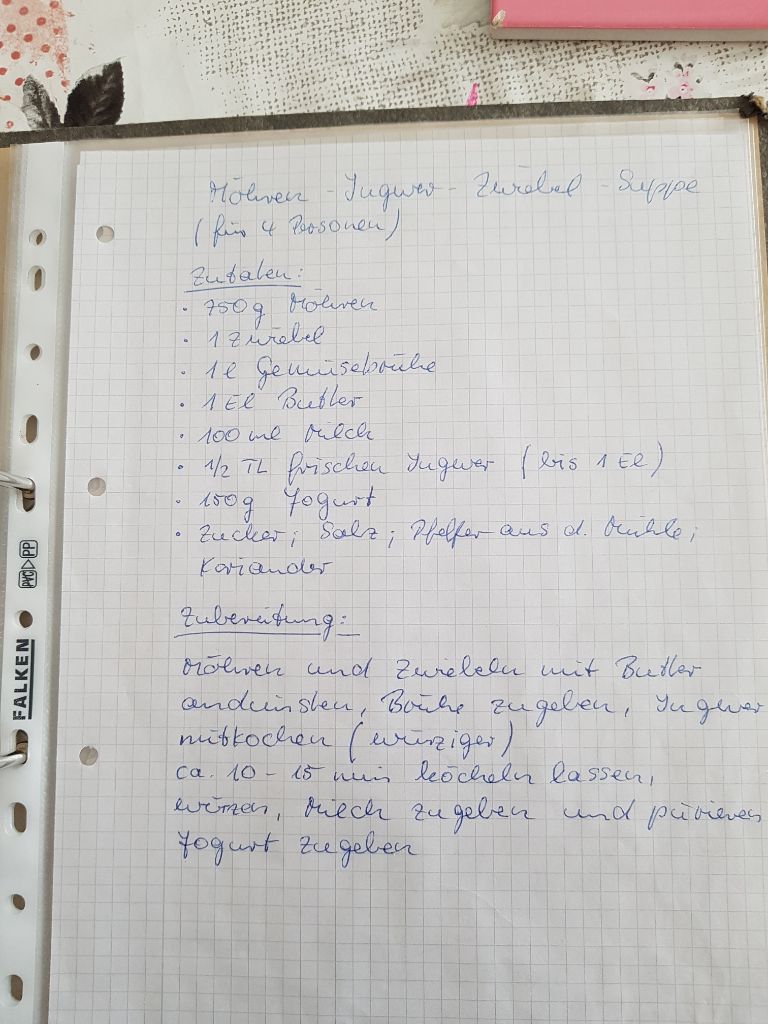 Möhren - Ingwer - Zwiebel - Suppe
(für 4 Personen)
Zutaten:
· 750g Möhren
· 1 Zwiebel
· 1 l Gemüsebrühe
· 1 El Butter
· 100 ml Milch
· 1/2 TL frischen Ingwer (bis 1 El)
· 150g Jogurt
· Zucker; Salz; Pfeffer aus d. Mühle;
Koriander
Zubereitung:
Möhren und Zwiebeln mit Butter
andünsten, Brühe zugeben, Ingwer
mitkochen (würziger)
ca. 10 - 15 min köcheln lassen,
würzen, Milch zugeben und pürieren
Jogurt zugeben
FALKEN
PVC PP